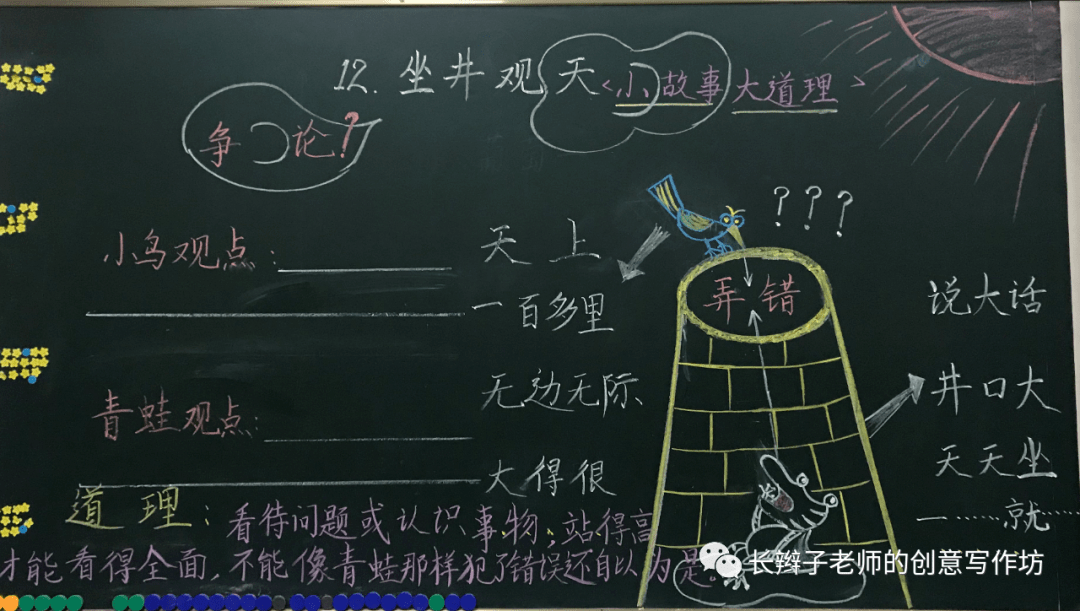 12. 坐井观天<小故事大道理>
争论?
???
小鸟观点:
天上
一百多里
无边无际
大得很
弄错
说大话
井口大
天天坐
一……就……
青蛙观点:
道理:看待问题或认识事物,站得高
才能看得全面,不能像青蛙那样犯了错误还自以为是。
长辫子老师的创意写作坊